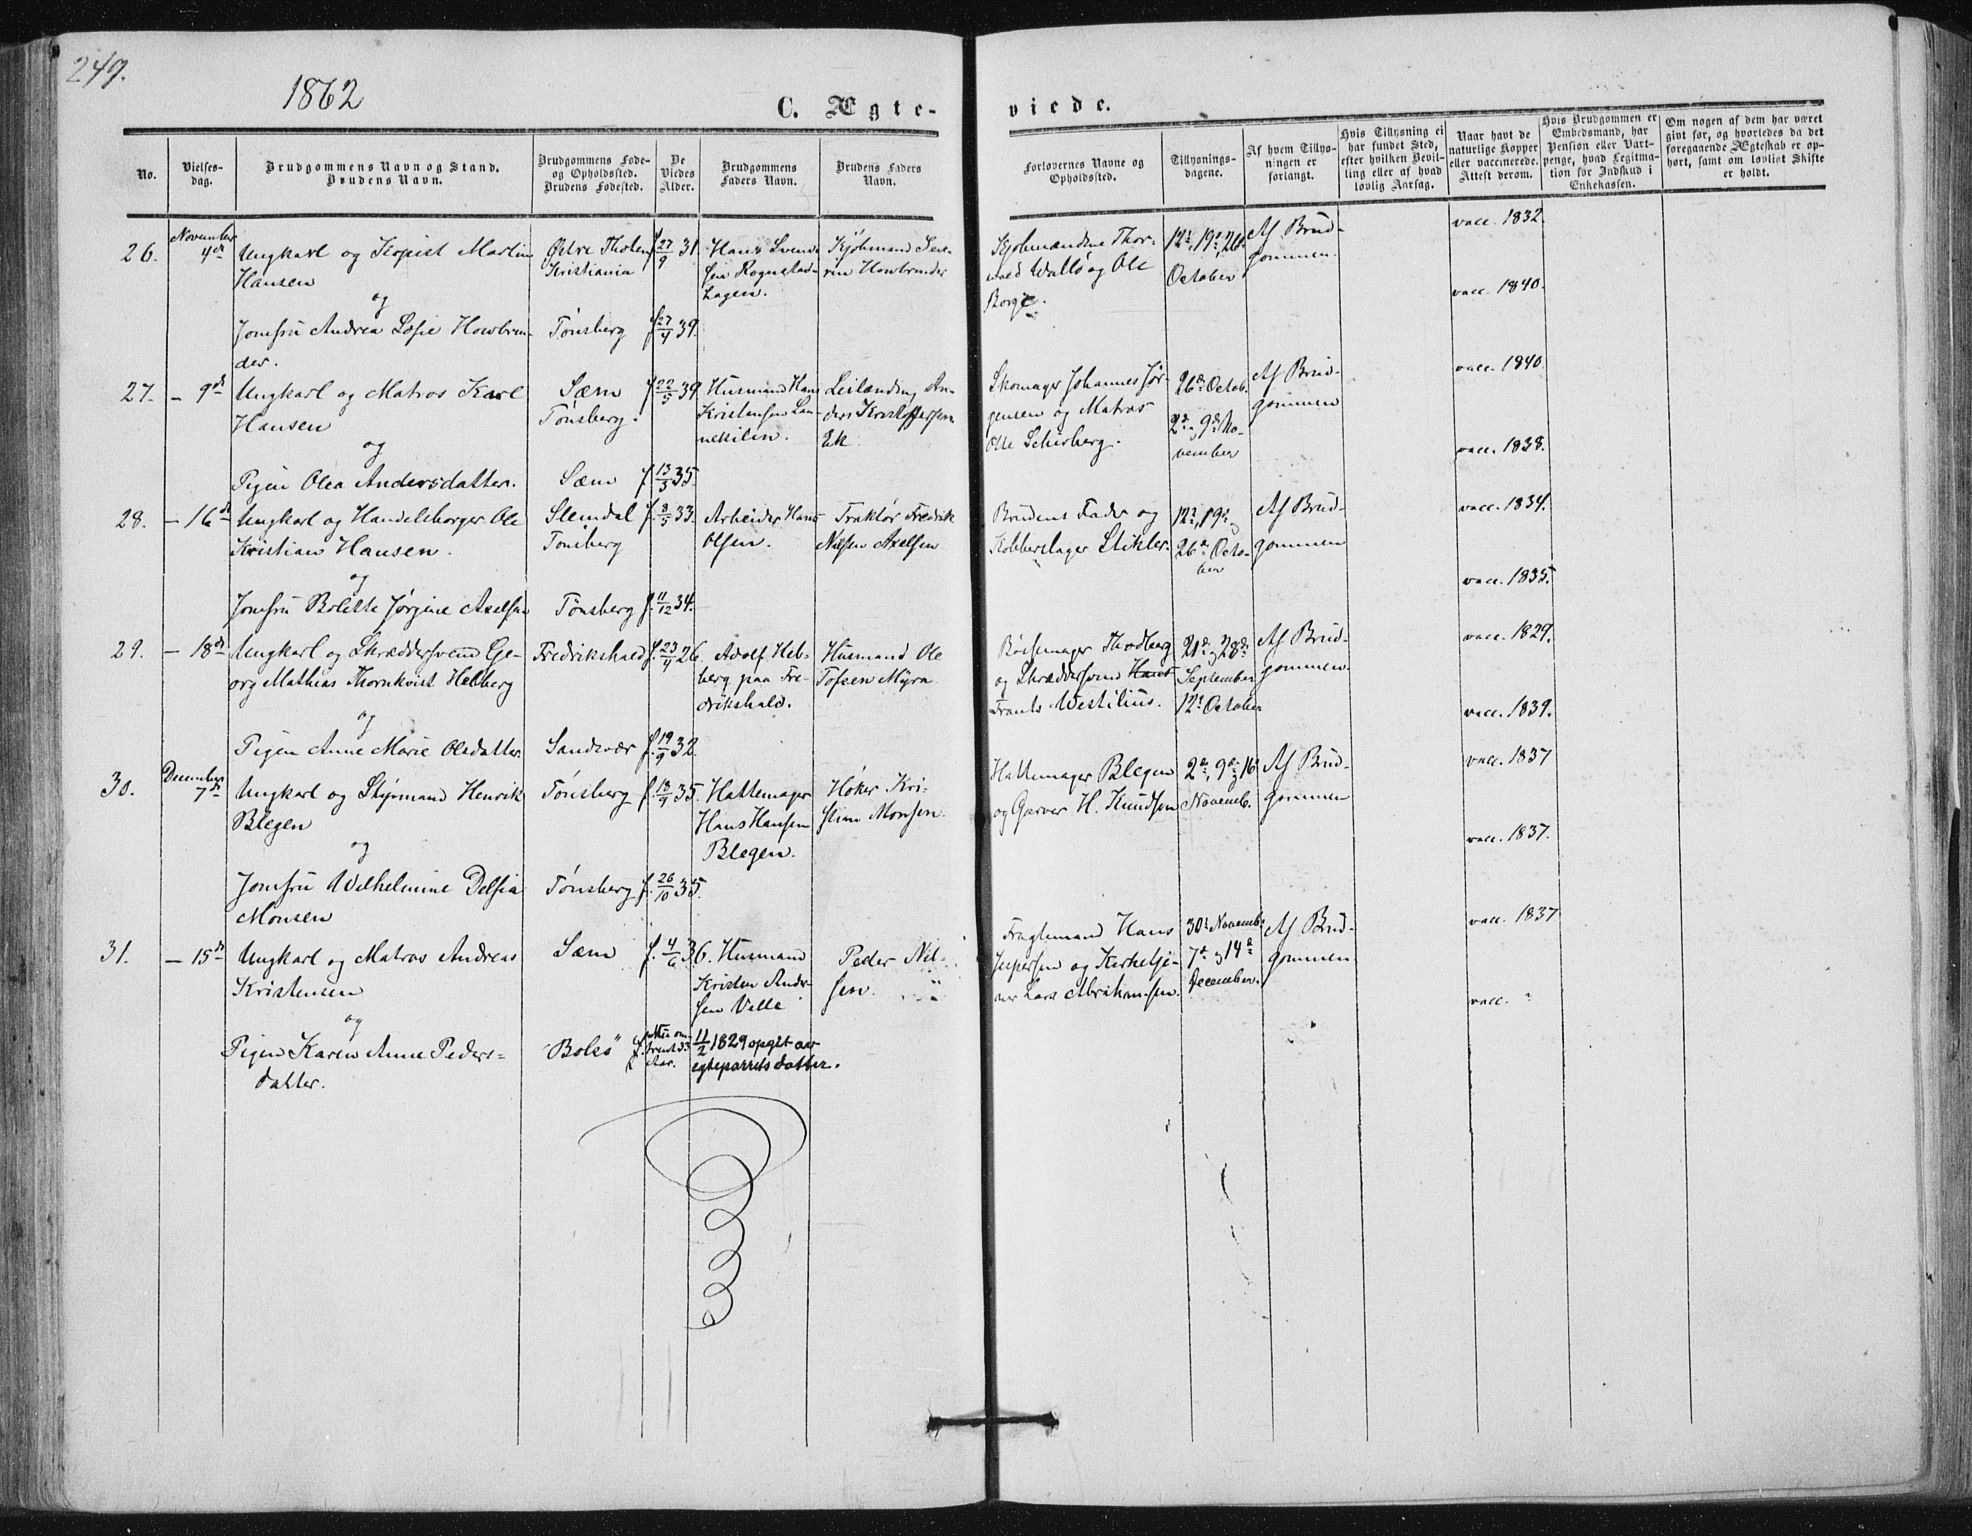 249.
1862
C. Ægte-
viede.
No.
Vielses-
dag.
Brudgommens Navn og Stand.
Brudens Navn.
Brudgommens Føde-
og Opholdssted.
Brudens Fødested.
De
Viedes
Alder.
Brudgommens
Faders Navn.
Brudens Faders
Navn.
Forlovernes Navne og
Opholdssted.
Tillysnings-
dagene.
Af hvem Tillys-
ningen er
forlangt.
Hvis Tillysning ei
har fundet Sted,
efter hvilken Bevil-
ling eller af hvad
lovlig Aarsag.
Naar havt de
naturlige Kopper
eller vaccinerede.
Attest derom.
Hvis Brudgommen er
Embedsmand, har
Pension eller Vart-
penge, hvad Legitima-
tion for Indskud i
Enkekassen.
Om nogen af dem har været
gift før, og hvorledes da det
foregaaende Ægteskab er op-
hørt, samt om lovligt Skifte
er holdt.
26.
November
4de
Ungkarl og Kopist Martin
Hansen
og
Jomfru Andrea Sofie Howbrin-
der.
Østre Thoten
Kristiania
Tønsberg
f 27/9 31.
f 27/4 39.
Hans Svend-
sen Rognstad-
hagen.
Kjøbmand Seve-
rin Howbrinder
Kjøbmændene Thor-
vald Wallø og Ole
Borge.
12te, 19de, 26de
October
Af Brud-
gommen.
vacc. 1832.
vacc. 1840.
27.
– 9de
Ungkarl og Matros Karl
Hansen
og
Pigen Olea Andersdatter.
Sæm
Tønsberg.
Sæm
f 22/5 39.
f 13/3 35.
Husmand Hans
Kristensen Lan-
nekilen.
Leilænding An-
ders Kristoffersen
Ek.
Skomager Johannes Jør-
gensen og Matros
Ole Schisberg.
26de Octob.
2den, 9de No-
vember
Af Brud-
gommen
vacc. 1840.
vacc. 1838.
28.
– 16de
Ungkarl og Handelsborger Ole
Kristian Hansen.
og
Jomfru Bolette Jørgine Axelsen
Slemdal
Tønsberg
Tønsberg
f. 8/5 33.
f. 11/12 34.
Arbeider Hans
Olsen.
Traktør Fredrik
Nilsen Axelsen
Brudens Fader og
Kobberslager Stikler.
12te, 19de og
26de Octo-
ber
Af Brud-
gommen
vacc. 1834.
vacc. 1835.
29.
– 18de
Ungkarl og Skræddersvend Ge-
org Mathias Thornkvist Hebberg
og
Pigen Anne Marie Olsdatter.
Fredrikshald
Sandsvær
f. 23/4 26.
f. 19/9 32.
Adolf Heb-
berg paa Fre-
drikshald.
Husmand Ole
Tofsen Myra
Bøssemager Thodberg
og Skræddersvend Hans
Frants Westilius.
21de og 28de
September
12te October
Af Brud-
gommen.
vacc. 1829.
vacc. 1839.
30.
December
7de
Ungkarl og Styrmand Henrik
Blegen
og
Jomfru Wilhelmine Delfia
Monsen
Tønsberg
Tønsberg
f. 18/9 35.
f. 26/10 35.
Hattemager
Hans Hansen
Blegen.
Høker Kri-
stian Monsen.
Hattemager Blegen
og Garver H. Knudsen
2den, 9de og 16de
Novemb.
Af Brud-
gommen
vacc. 1837
vacc. 1837.
31.
– 15de
Ungkarl og Matros Andreas
Kristensen
og
Pigen Karen Anne Peders-
datter.
Sæm
"Bolsø"
f. 4/6 36.
11/2 1829 opgit av
egteparrets datter.
Husmand
Kristen Ander-
sen Velle
Peder Nil-
sen.
Fragtemand Hans
Jespersen og Kirketje-
ner Lars Abrahamsen.
30te Novemb.
7de og 14de
December.
Af Brud-
gommen
vacc. 1837
vacc. "